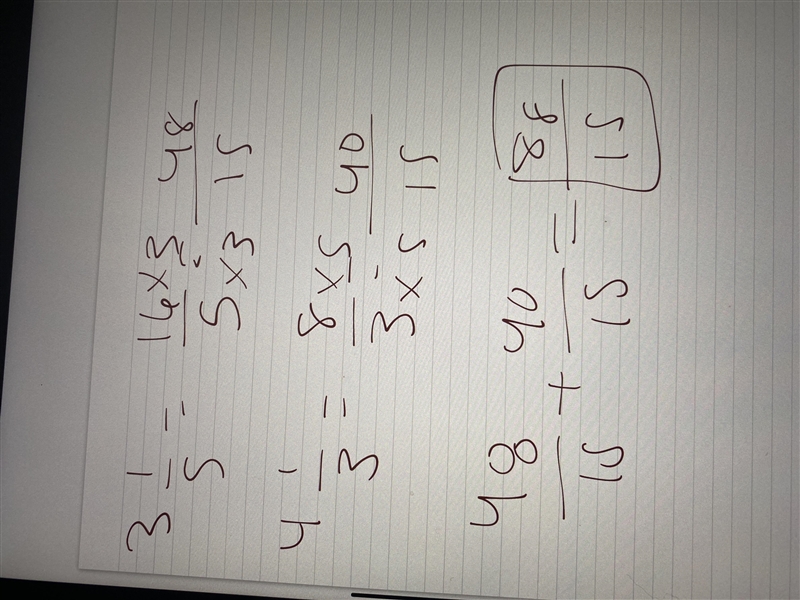 3 1/5 = 16 x 3 / 5 x 3 48/15
4 1/3 = 8 x 5 / 3 x 5 40/15
48/15 + 40/15 = 88/15